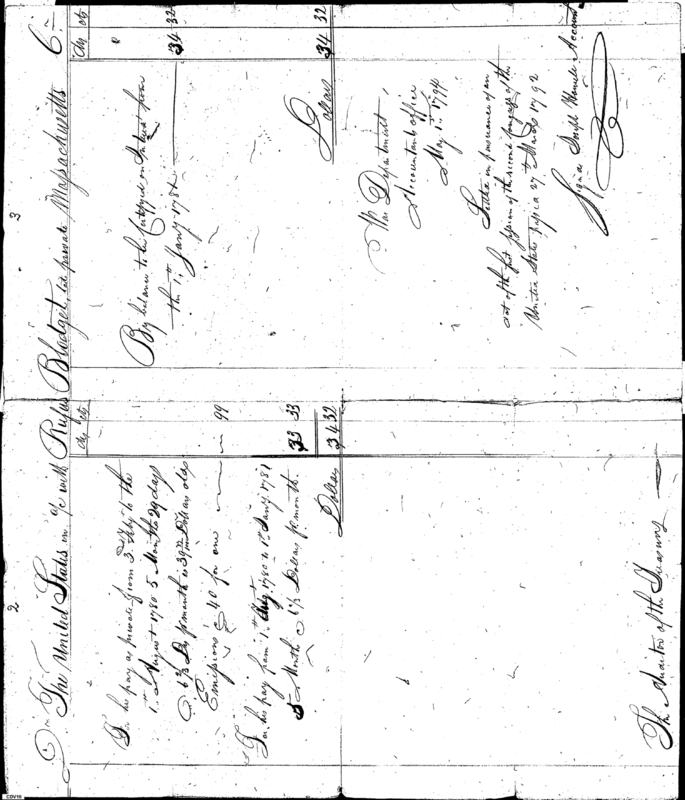 2
3
Dr. The United States in a/c with Rufus Blodget, late private Massachusetts Cr.
Dls cts
To his pay as private from 3. Feby to the
1st August 1780 5 Months 29 days
@ 6 2/3 Dls p month is 39 Dollars old
Emissions @ 40 for one 99
To his pay from 1st Augt 1780 to 1st Jany 1781
5 Months @ 6 2/3 Dollars p month. 33 33
Dollars 34 32
Dls cts
By balance to be certifyed on Interest from
the 1st Jany 1781 34 32
Dollars 34 32
War Department,
Accountants office
May 1st 1794
Settled in pursuance of an
act of the first session of the second Congress of the
United States passed 27th March 1792
Signed Joseph Howell Accountant
The Auditor of the Treasury
CDV10